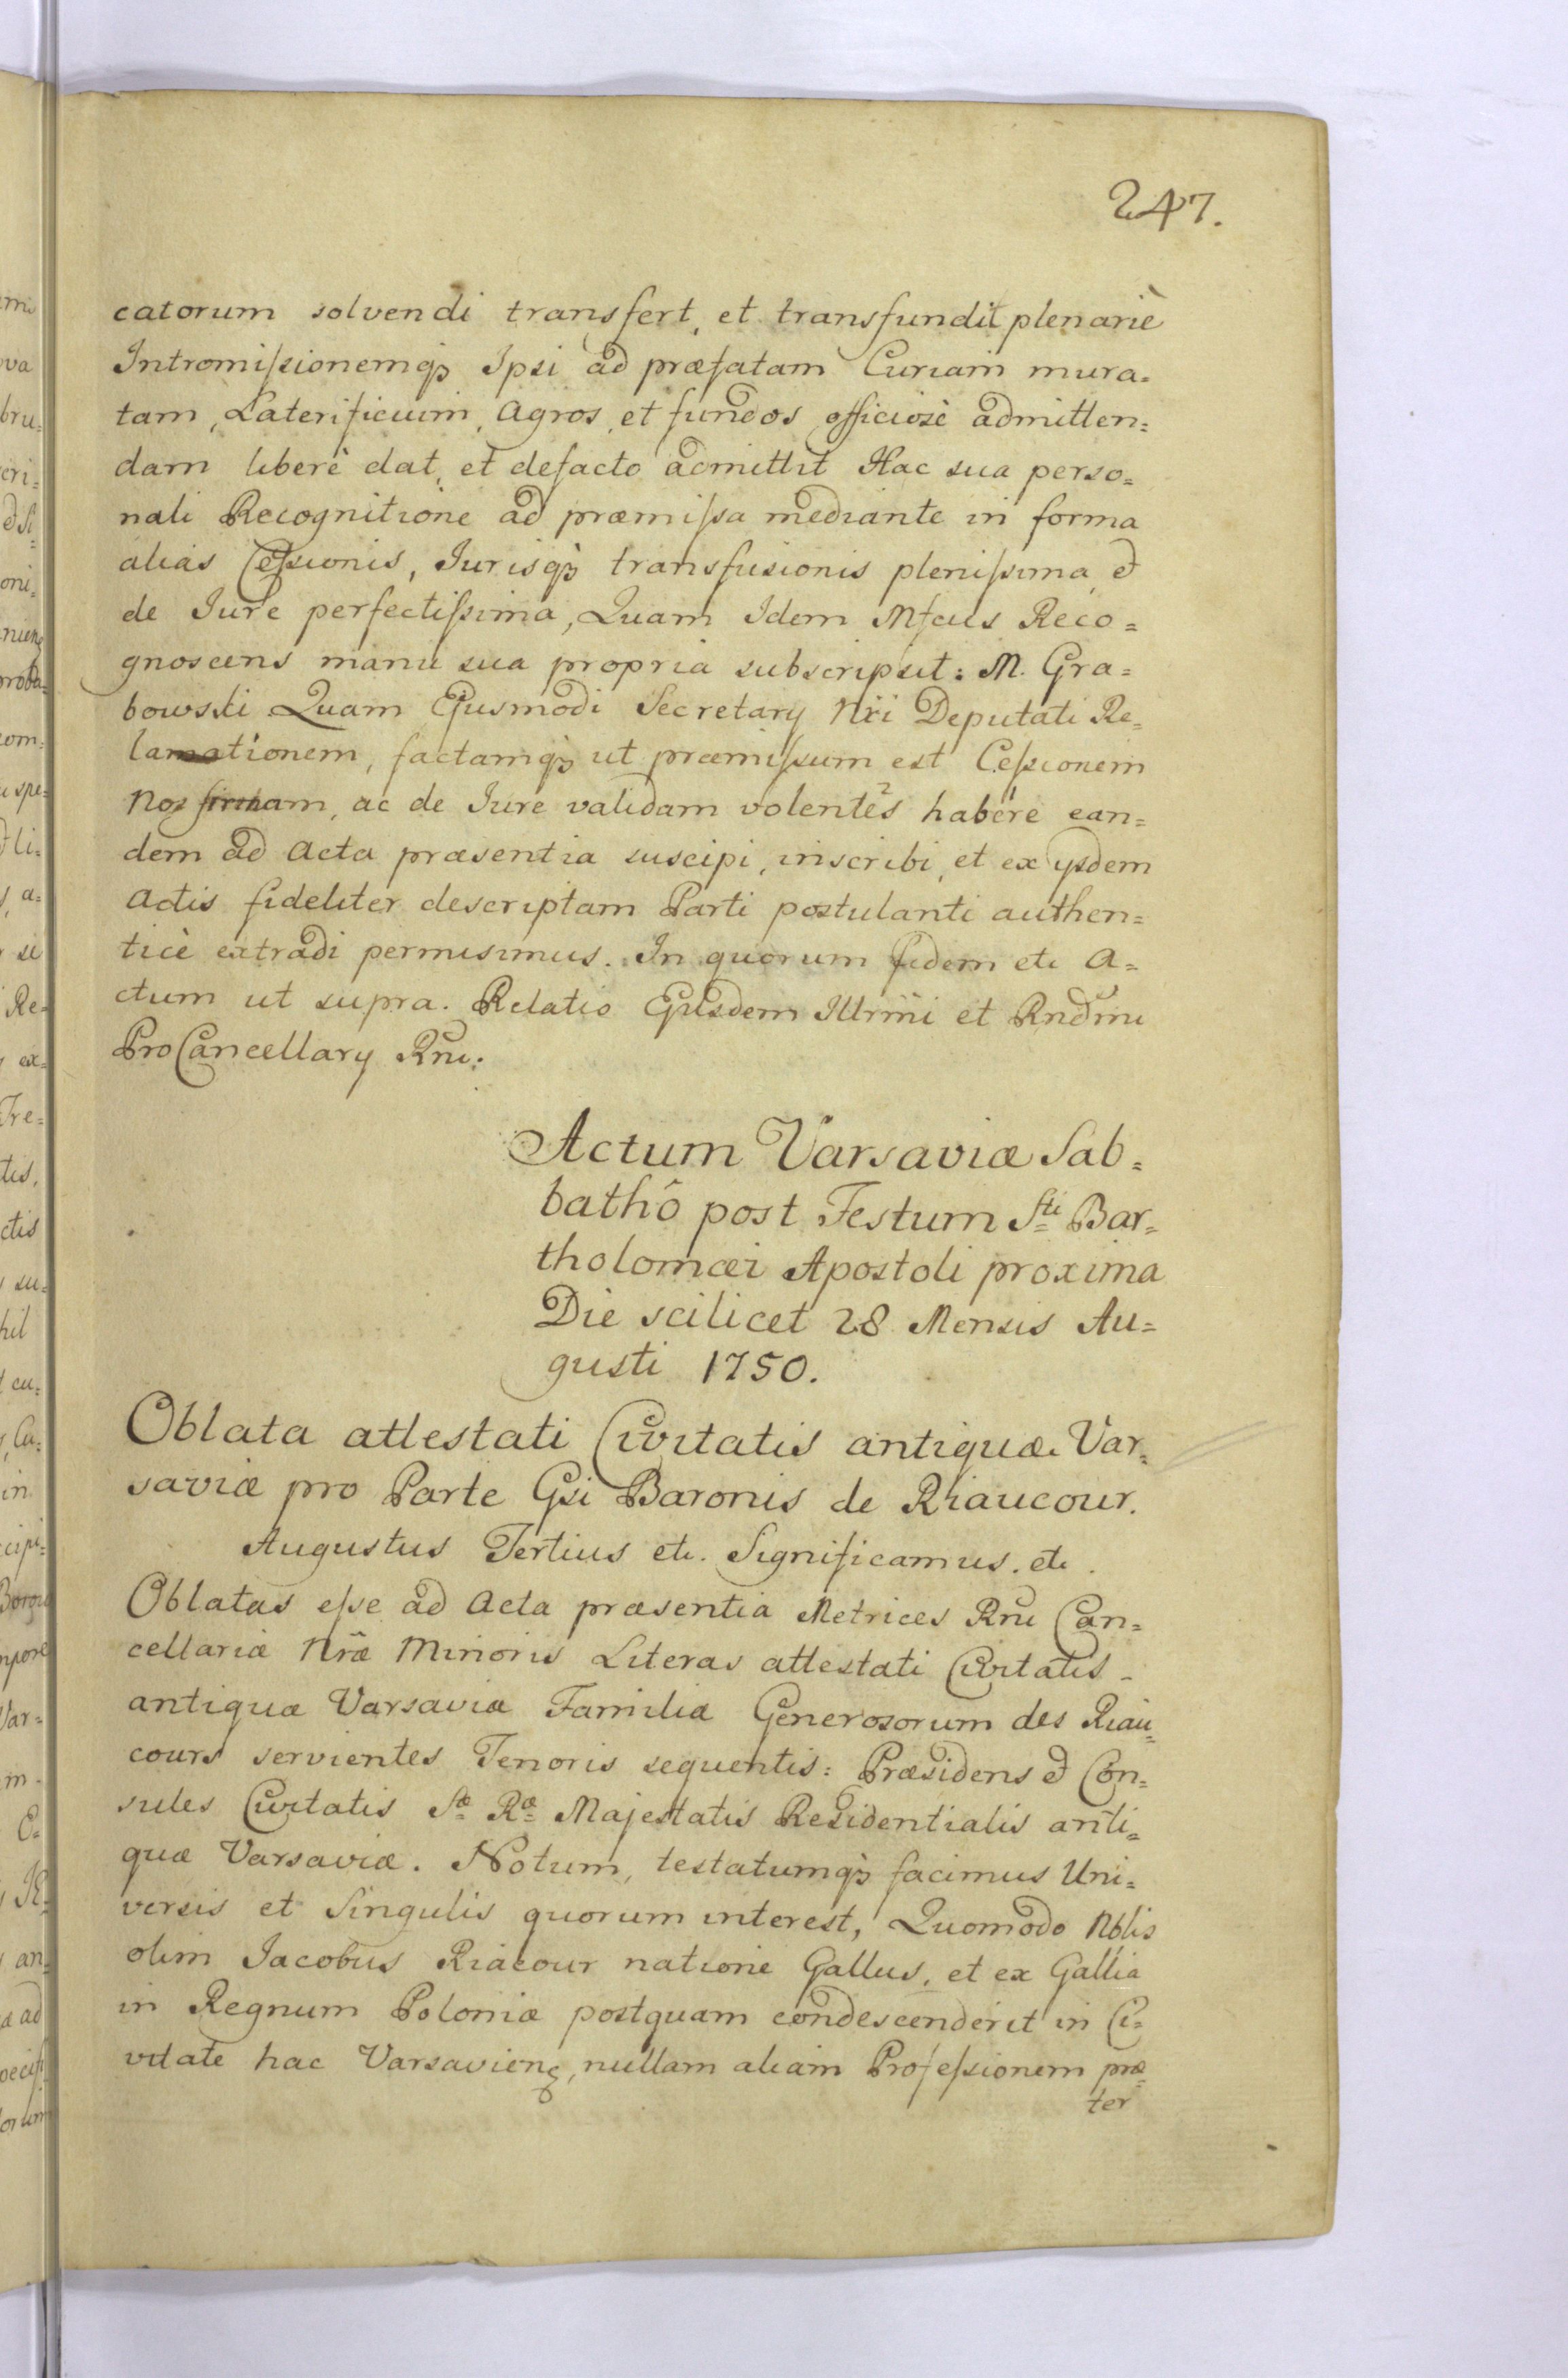 247.
catorum solvendi transfert, et transfundit plenariè
Intromißionemq̃ Ipsi ad præfatam Curiam mura=
tam, Laterificium, Agros, et fundos officiosè admitten=
dam liberè dat, et defacto admittit Hac sua perso=
nali Recognitione ad præmißa mediante in forma
alias Ceßionis, Jurisq̃ transfusionis plenißima, et
de Jure perfectißima, Quam Idem Mfcus Reco=
gnoscens manu sua propria subscripsit: M. Gra=
bowski Quam Ejusmodi Secretary Nr̃i Deputati Re=
lationem, factamq̃ ut præmißum est Ceßionem
Nos firmam, ac de Jure validam volentes habere ean=
dem ad Acta præsentia suscipi, inscribi, et ex ijsdem
Actis fideliter descriptam Parti postulanti authen=
ticè extradi permisimus. In quorum fidem etc A=
ctum ut supra. Relatio Ejusdem Illrm̃i et Rndm̃i
ProCancellary Rñi.
Actum Varsaviæ Sab=
bathô post Festum Sti Bar=
tholomæi Apostoli proxima
Die scilicet 28 Mensis Au=
gusti 1750.
Oblata attestati Civitatis antiquæ Var=
saviæ pro Parte Gsi Baronis de Riaucour.
Augustus Tertius etc. Significamus. etc.
Oblatas eße ad Acta præsentia Metrices Rñi Can=
cellariæ Nr̃æ Minoris Literas attestati Civitatis
antiquæ Varsaviæ Familiæ Generosorum des Riau=
cours servientes Tenoris sequentis: Præsidens et Con=
sules Civitatis Sæ Ræ Majestatis Residentialis anti=
quæ Varsaviæ. Notum, testatumq̃ facimus Uni=
versis et Singulis quorum interest, Quomodo Nblis
olim Jacobus Riacour natione Gallus, et ex Gallia
in Regnum Poloniæ postquam condescenderit in Ci=
vitate hac Varsavieng, nullam aliam Profeßionem præ=
ter